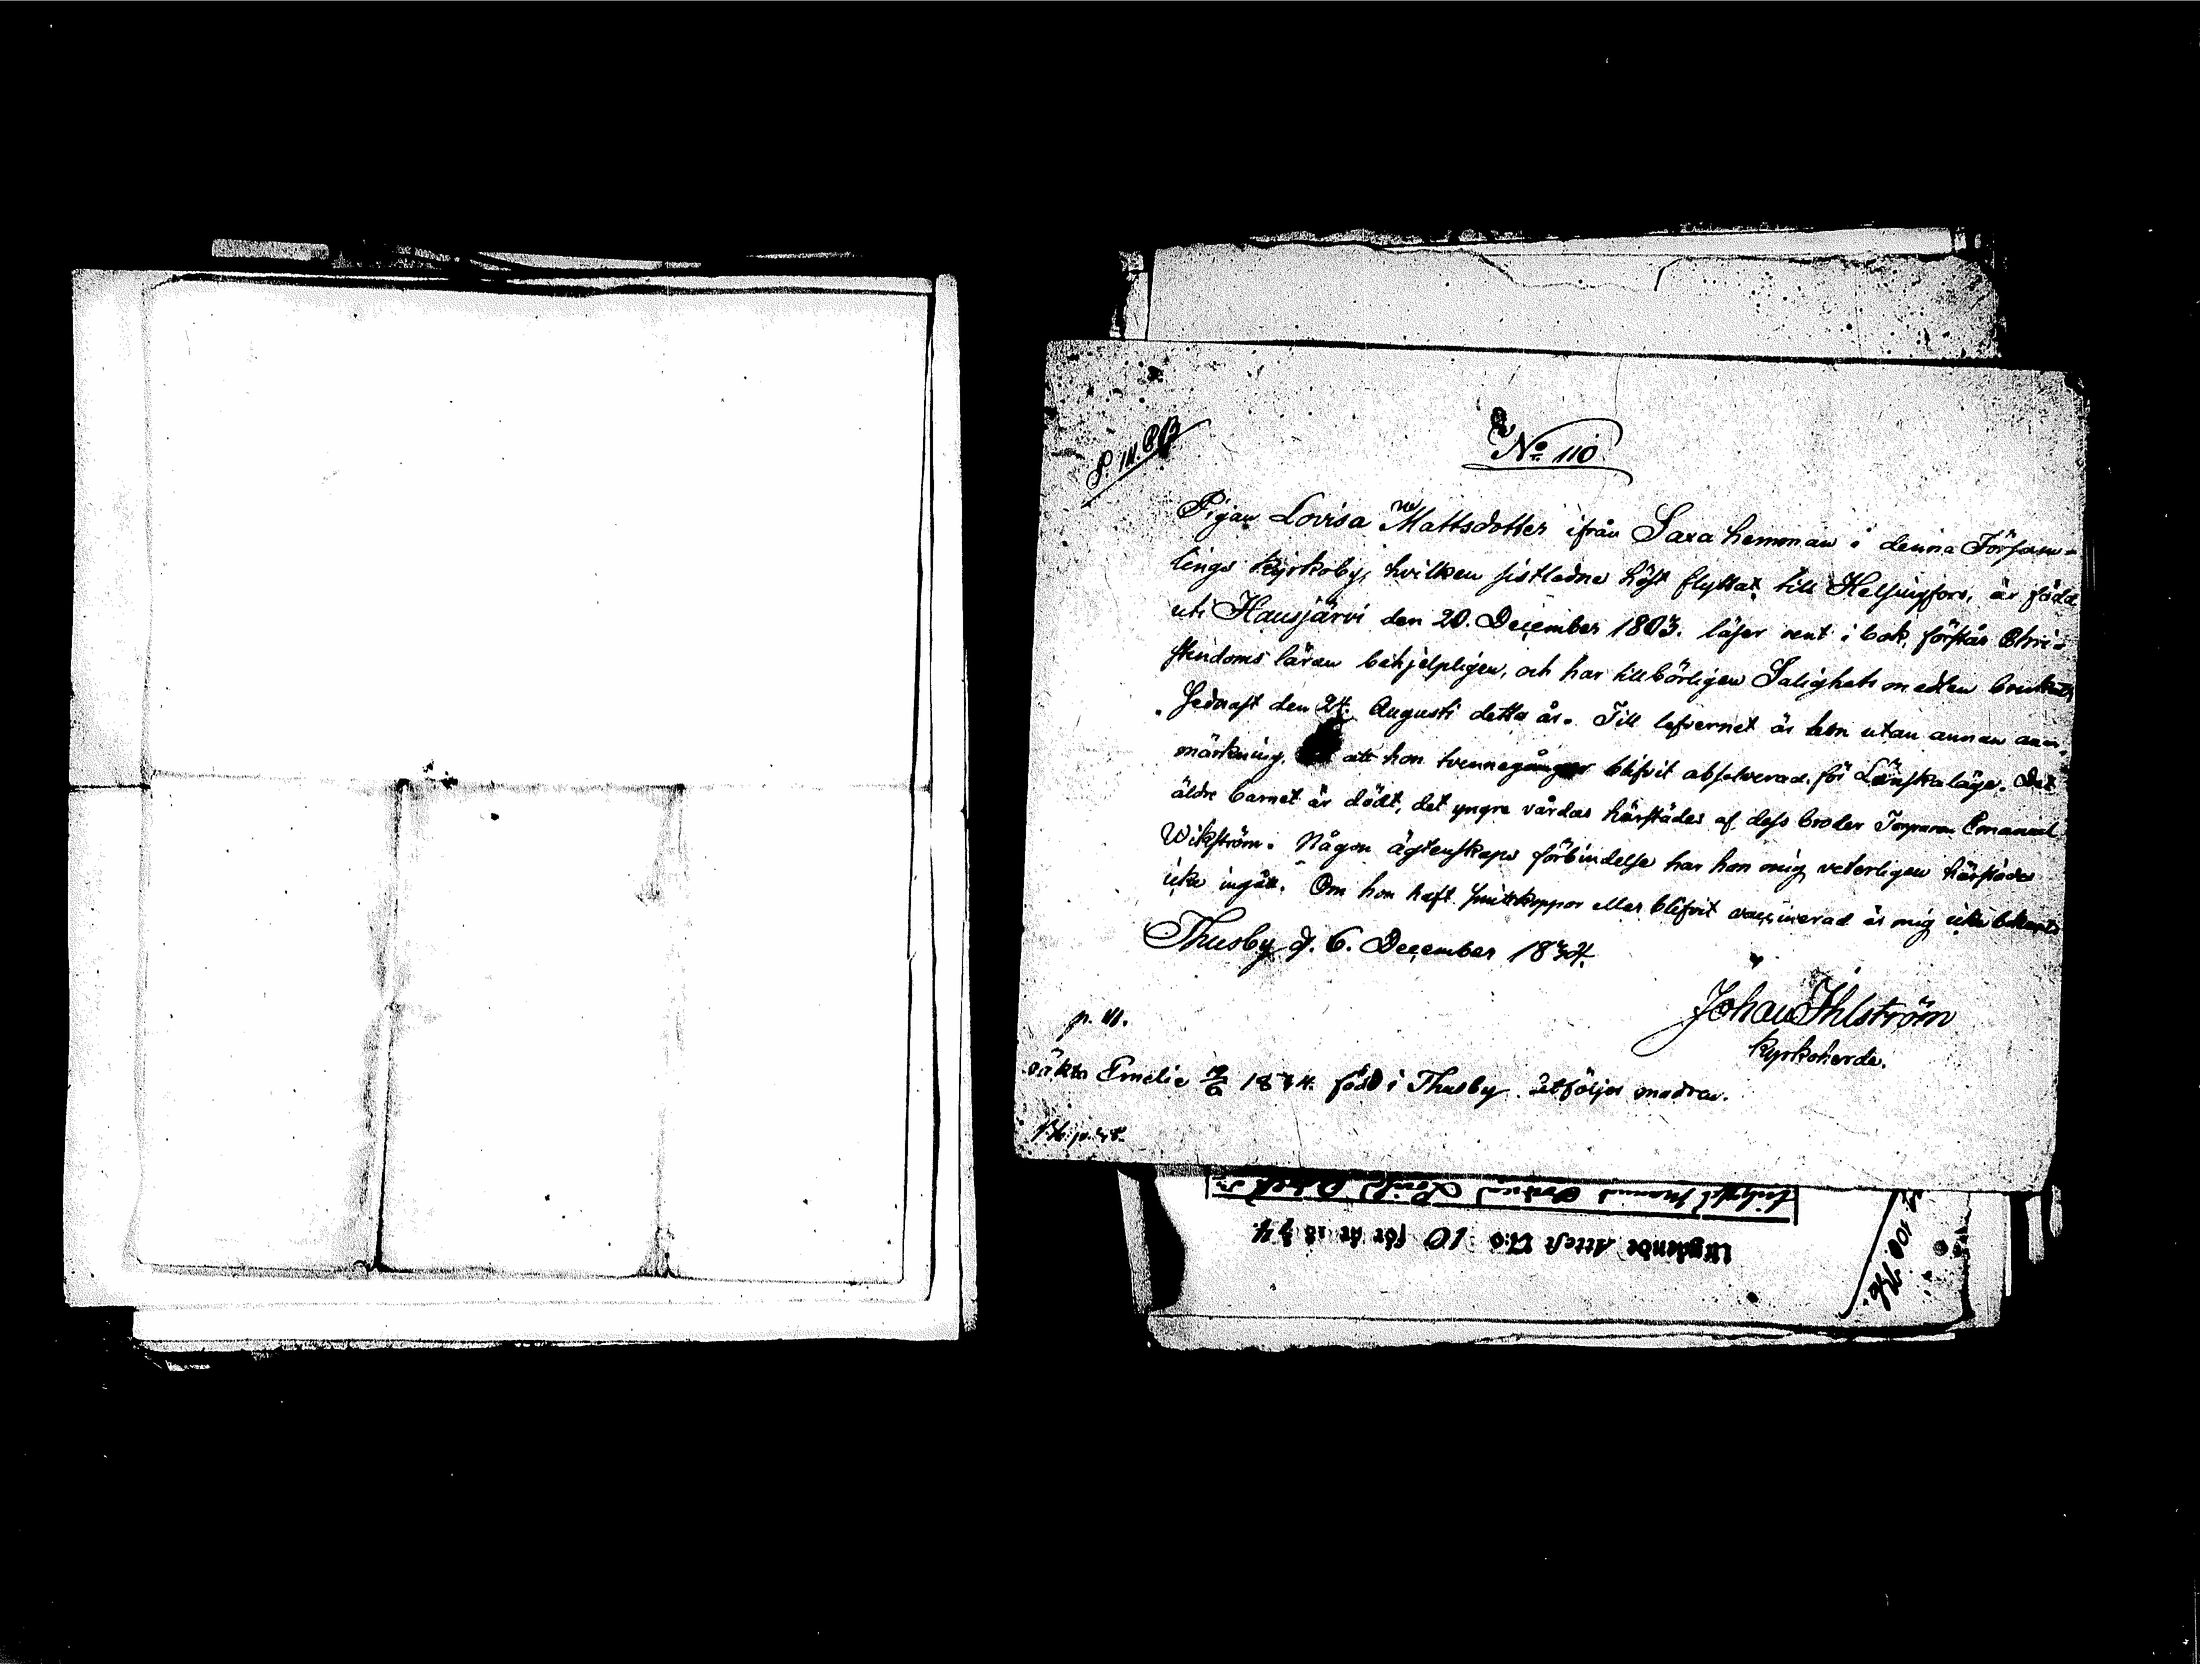 No 110
Pigan Lovisa Mattsdotter ifrån Saxa hemman i denna Försam-
lings Kyrkoby, hvilken sistledne höst flyttat till Helsingfors, är född
uti Hausjärvi den 20. December 1803. läser rent i bok, förstår Chri-
stendoms läran behjelpligen, och har tillbörligen Salighets medlen brukat,
sednast den 24. Augusti detta år. Till lefvernet är hon utan annan an-
märkning, att hon tvennegånger blifvit absolverad för Lönskaläge. Det
äldre barnet är dödt, det yngre vårdas härstädes af dess broder Torparen Emanuel
Wikström. Någon ägtenskaps förbindelse har hon mig veterligen härstädes
icke ingått. Om hon haft smittkoppor eller blifvit vaccinerad är mig icke bekant
Thusby d. 6. December 1834.
Johan Ihlström
Kyrkoherde.
p. 111.
oäkta Emelie född i Thusby åtföljer modren.
Utgående Attest N:o 10 för år 1874